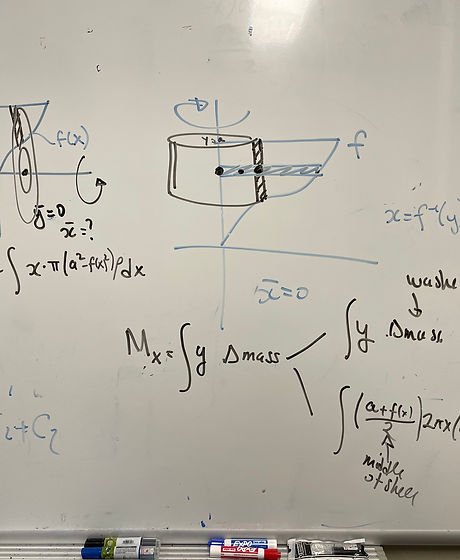 f(x)
ȳ=0
x̄=?
∫ x·π(a²-f(x)²)ρdx
y=a
f
x=f⁻¹(y)
x̄=0
washe
Mx = ∫ y Δmass
∫ y Δmass
∫ (a+f(x)/2) 2πx(
middle
of shell
+C₂
EXPO